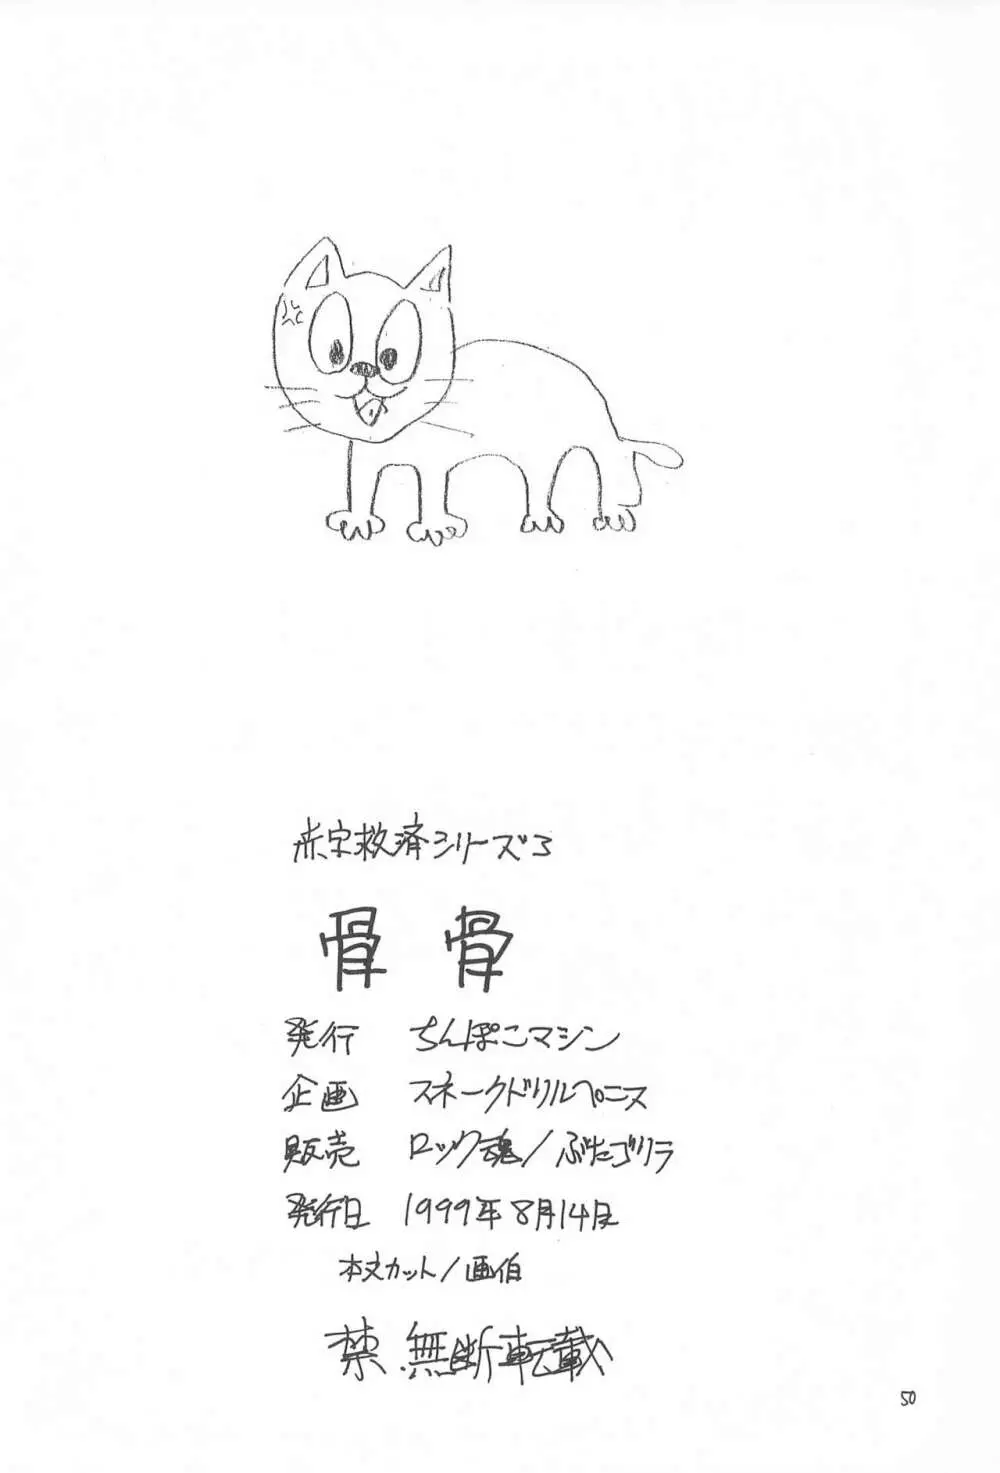 赤字救済シリーズ3
骨骨
発行 ちんぽこマシン
企画 スネークドリルペニス
販売 ロック魂/ぶたゴリラ
発行日 1999年8月14日
本文カット/画伯
禁無断転載
50